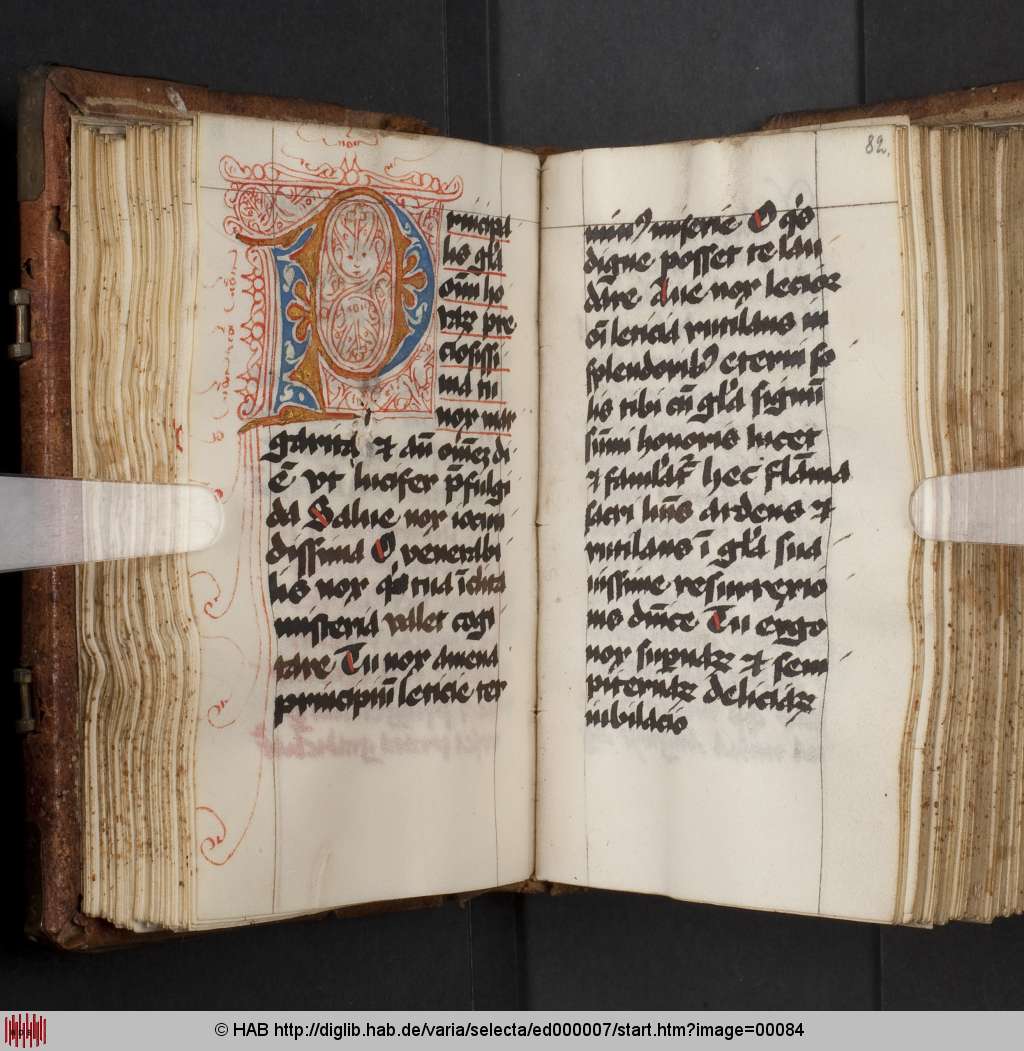 Principa
lis gl̄a
om̄ ho
raꝝ pre
ciosissi
ma tu
nox mar
garita Et
Ē vt lucifer p̄fulgi
da Salue nox iocun
dissima O venerabi
lis nox tua īclita
misteria valet cogi
tare Tu nox amena
principiū leticie ter
82.
miserie O
digne posset te lau
dare Aue nox leticie
leticia rutilans in
splendoribꝰ eterni so
lis tibi cū gl̄a signū
sūmi honoris lucet
hec flāma
sacri ardens et
rutilans ī gl̄a sua
uissime resurrexio
nis dn̄ice Tu ergo
nox sup̄naꝝ et sem
piternaꝝ deliciaꝝ
iubilacio
HAB
© HAB http://diglib.hab.de/varia/selecta/ed000007/start.htm?image=00084